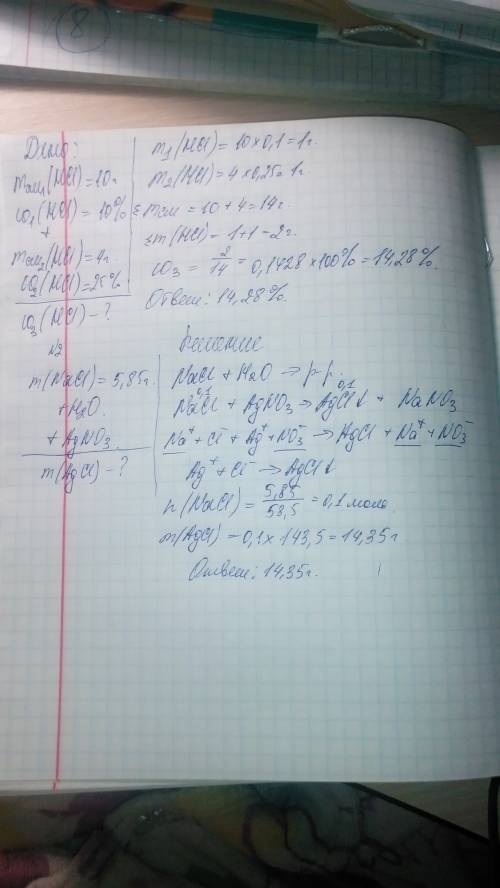 8
Дано:
mсм₁(HCl)=10г
ω₁(HCl)=10%
+
mсм₂(HCl)=4г
ω₂(HCl)=25%
ω₃(HCl)-?
m₁(HCl)=10×0,1=1г.
m₂(HCl)=4×0,25=1г.
Σmсм=10+4=14г.
Σm(HCl)=1+1=2г.
ω₃=2/14=0,1428×100%=14,28%.
Ответ: 14,28%.
№2
m(NaCl)=5,85г.
+H₂O.
+AgNO₃
m(AgCl)-?
Решение
NaCl+H₂O→р-р.
0,1 0,1
NaCl+AgNO₃→AgCl↓+NaNO₃
Na⁺+Cl⁻+Ag⁺+NO₃⁻→AgCl+Na⁺+NO₃⁻
Ag⁺+Cl⁻→AgCl↓
n(NaCl)=5,85/58,5=0,1моль.
m(AgCl)=0,1×143,5=14,35г
Ответ: 14,35г.